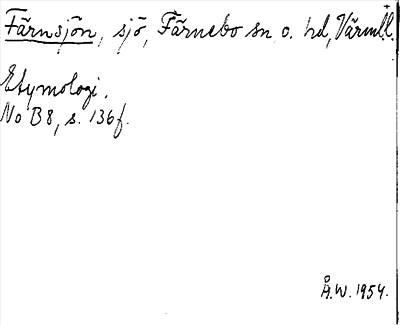 Färnsjön, sjö, Färnebo sn o. hd, Värml.
Etymologi.
No B8, s. 136 f.
Å.W. 1954.